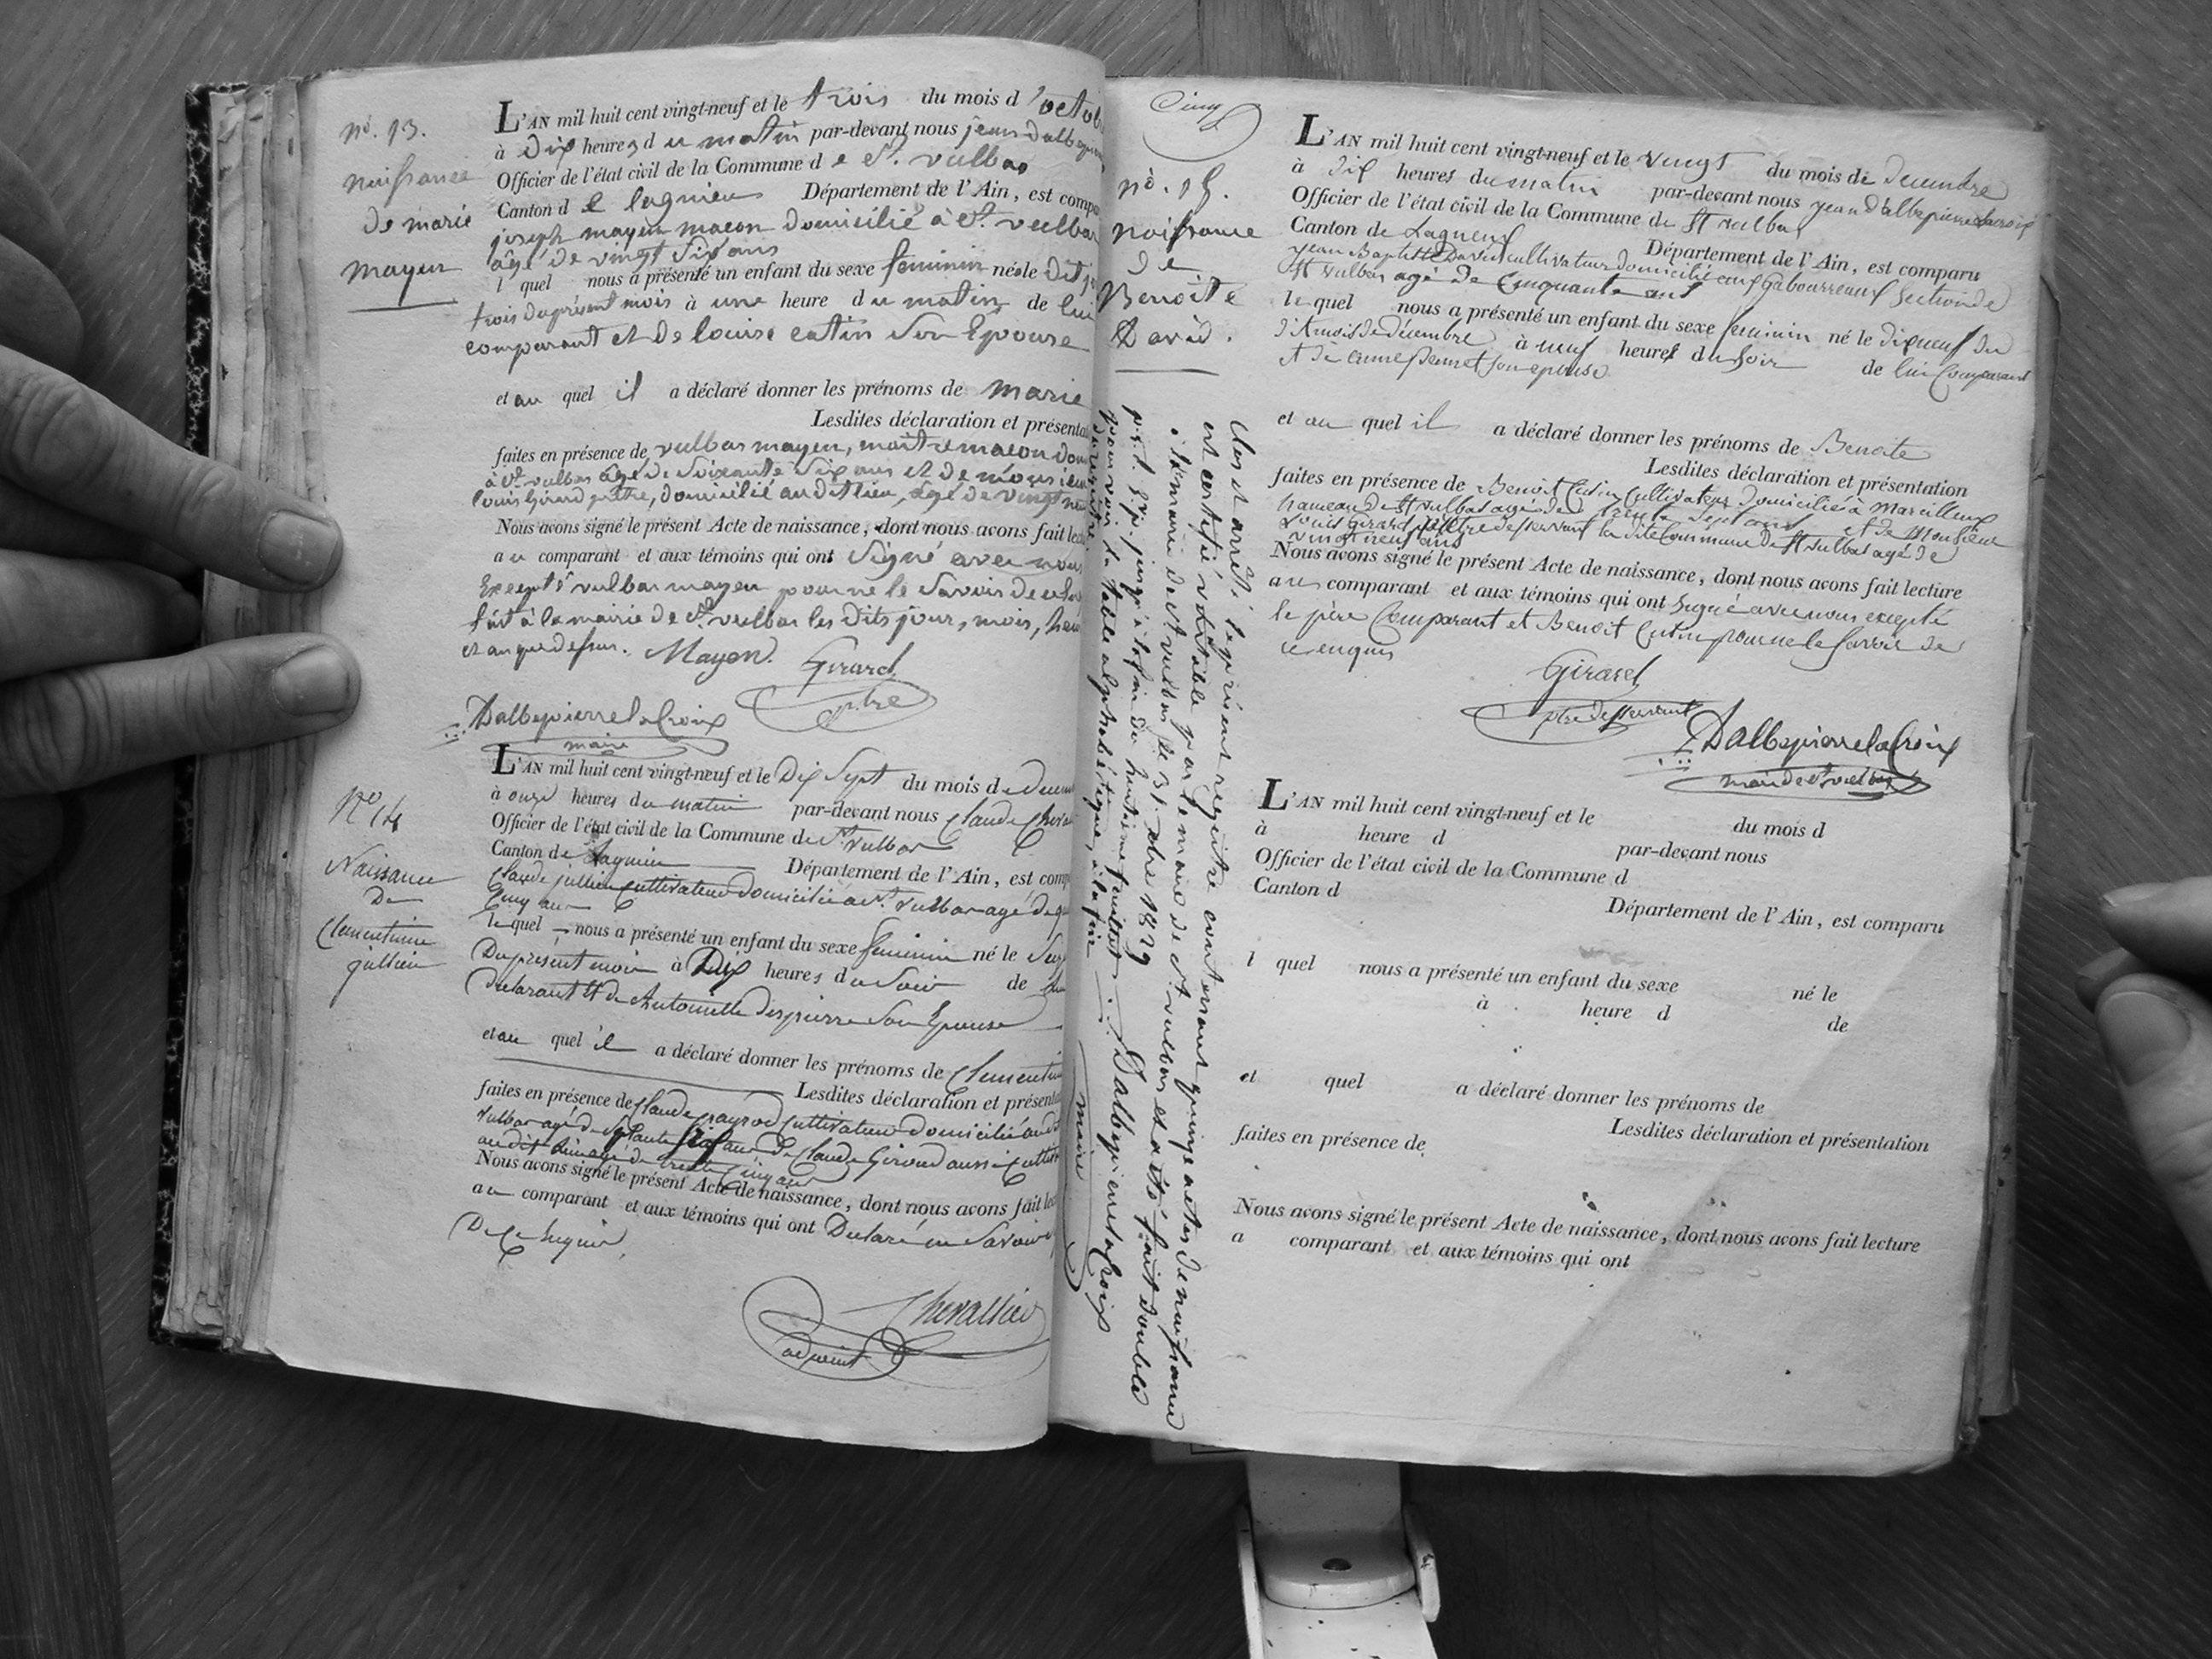 no. 13.
naissance
de marie
mayen
L'AN mil huit cent vingt-neuf et le trois du mois d'octob
à dix heures du matin par-devant nous jean dalbepierre
Officier de l'état civil de la Commune de St. vulbas
Canton de lagnieu Département de l'Ain, est comp
joseph mayen macon domicilié à St. vulbas
âgé de vingt six ans
lequel nous a présenté un enfant du sexe feminin née le dit j
trois du présent mois à une heure du matin de lui
comparant et de louise catin son Epouse
et au quel il a déclaré donner les prénoms de marie
Lesdites déclaration et présenta
faites en présence de vulbas mayen, maître macon dom
à St. vulbas âgé de soixante six ans et de monsieur
louis Girard prêtre, domicilié au dit lieu, âgé de vingt neuf
Nous avons signé le présent Acte de naissance, dont nous avons fait lec
au comparant et aux témoins qui ont signé avec nous
Excepté vulbas mayen pour ne le savoir de ce
fait à la mairie de St. vulbas les dits jour, mois, heure
et an que dessus. Mayen. Girard
ptre
Dalbepierre laCroix
maire
No 14
Naissance
De
Clementine
jullien
L'AN mil huit cent vingt-neuf et le Dix Sept du mois de decem
à onze heures du matin par-devant nous Claude Cheva
Officier de l'état civil de la Commune de St. Vulbas
Canton de Lagnieu Département de l'Ain, est comp
Claude jullien Cultivateur domicilié à St. Vulbas agé de
Cinq ans
lequel nous a présenté un enfant du sexe feminin né le Seize
Du présent mois à Dix heures du Soir de lui
Déclarant et de Antoinette Despierre Son Epouse
et au quel il a déclaré donner les prénoms de Clementine
Lesdites déclaration et présenta
faites en présence de Claude Cultivateur Domicilié audit
Vulbas agé de Six ans De Claude Giroud aussi Cultiv
audit lieu agé de trente Cinq ans
Nous avons signé le présent Acte de naissance, dont nous avons fait lec
au comparant et aux témoins qui ont Déclaré ne Savoir
De ce requis.
Chevallier
adjoint
Cinq
no. 15.
naissance
de
Benoite
David.
L'AN mil huit cent vingt-neuf et le vingt du mois de decembre
à dix heures du matin par-devant nous jean dalbepierre lacroix
Officier de l'état civil de la Commune de St vulbas
Canton de Lagneux Département de l'Ain, est comparu
jean Baptiste David cultivateur domicilié aux Gabourreaux section de
St vulbas agé de Cinquante ans
lequel nous a présenté un enfant du sexe feminin né le dixneuf du
dit mois de décembre à neuf heures du soir de lui Comparant
et de anne son epouse
et au quel il a déclaré donner les prénoms de Benoite
Lesdites déclaration et présentation
faites en présence de Benoit Cutin Cultivateur domicilié à Marcilleux
hameau de St vulbas agé de trente Sept ans et de Monsieur
Louis Girard prêtre desservant la dite Commune de St vulbas agé de
vingt neuf ans
Nous avons signé le présent Acte de naissance, dont nous avons fait lecture
aux comparant et aux témoins qui ont signé avec nous excepté
le père Comparant et Benoit Cutin pour ne le savoir de
ce enquis
Girard
ptre desservant
Dalbepierre laCroix
maire de St vulbas
Clos et arrêté le présent registre contenant quinze actes de naissance
est certifié véritable par le maire de St. vulbas et a été fait double
à la mairie de St vulbas le 31 xbre 1829
jusqu'à la fin du huitième feuillet. Dalbepierre laCroix
pour voir la table alphabétique, à la fin maire
du registre.
L'AN mil huit cent vingt-neuf et le du mois d
à heure d par-devant nous
Officier de l'état civil de la Commune d
Canton d Département de l'Ain, est comparu
l quel nous a présenté un enfant du sexe né le
à heure d de
et quel a déclaré donner les prénoms de
Lesdites déclaration et présentation
faites en présence de
Nous avons signé le présent Acte de naissance, dont nous avons fait lecture
a comparant et aux témoins qui ont